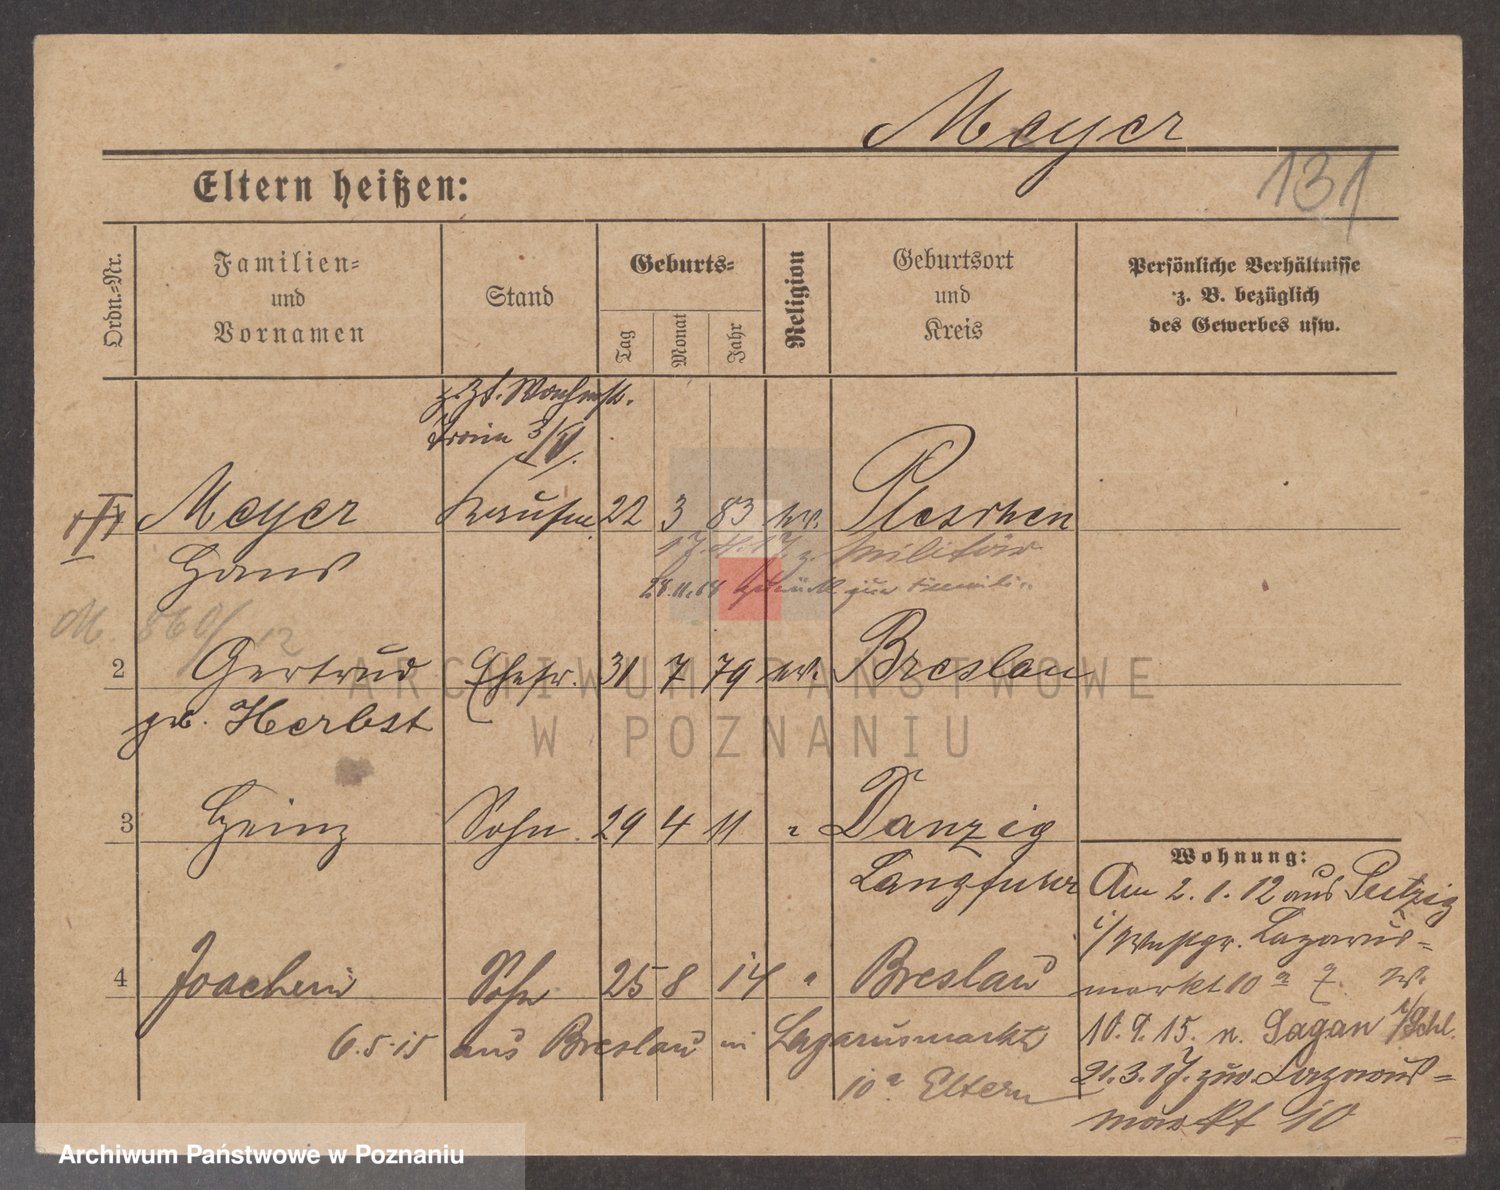 Meyer
131
Eltern heißen:
Ordn.-Nr.
Familien-
und
Vornamen
Stand
Geburts-
Tag
Monat
Jahr
Religion
Geburtsort
und
Kreis
Persönliche Verhältnisse
z. B. bezüglich
des Gewerbes usw.
z. Zt.
Meyer Kaufm. 22 3 83 ev. Pleschen
Hans
17. 17 z. Militär
28.11.18 zurück zur Familie
M. 860/12
2 Gertrud Ehefr. 31 7 79 ev. Breslau
gb. Herbst
3 Heinz Sohn 29 4 11 " Danzig
Langfuhr
4 Joachim Sohn 25 8 14 " Breslau
6.5.15 aus Breslau in Lazarusmarkt
10a Eltern
Wohnung:
Am 2.1.12 aus Putzig
i/Westpr. Lazarus-
markt 10 a
10.9.15. n. Sagan i/Schl.
21.3.17. zur. Lazarus-
markt 10
ARCHIWUM PAŃSTWOWE
W POZNANIU
Archiwum Państwowe w Poznaniu